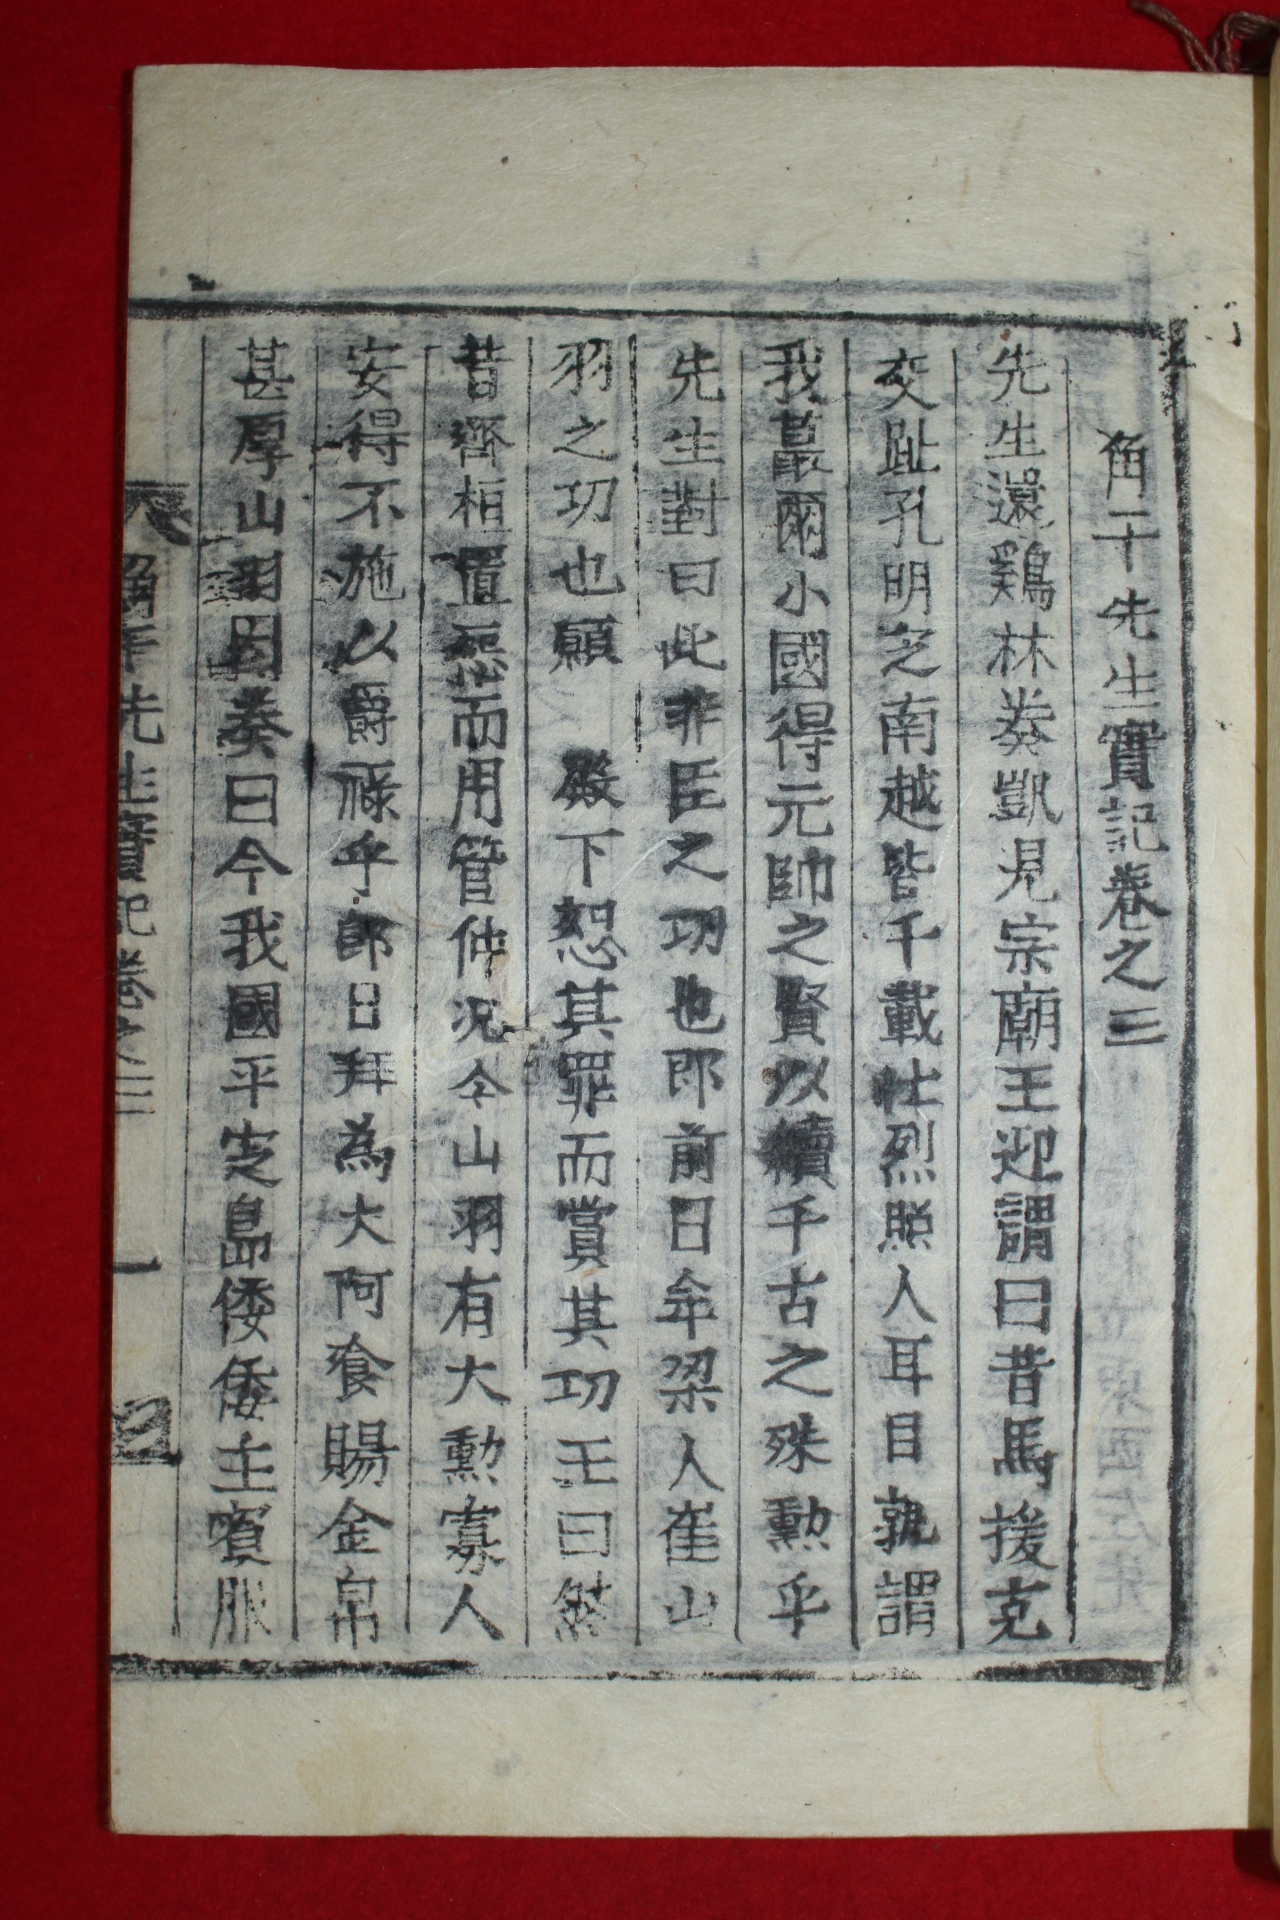 角干先生實記卷之三
先生還鷄林奏凱見宗廟王迎謂曰昔馬援克
交趾孔明之南越皆千載壯烈照人耳目孰謂
我蕞爾小國得元帥之賢以續千古之殊勳乎
先生對曰此非臣之功也郎前日年梁人崔山
羽之功也願 殿下恕其罪而賞其功王曰然
昔齊桓置怨而用管仲况今山羽有大勳寡人
安得不施以爵祿乎郎日拜為大阿飡賜金帛
甚厚山羽因奏曰今我國平定島倭倭主賓服
角干先生實記卷之三 一